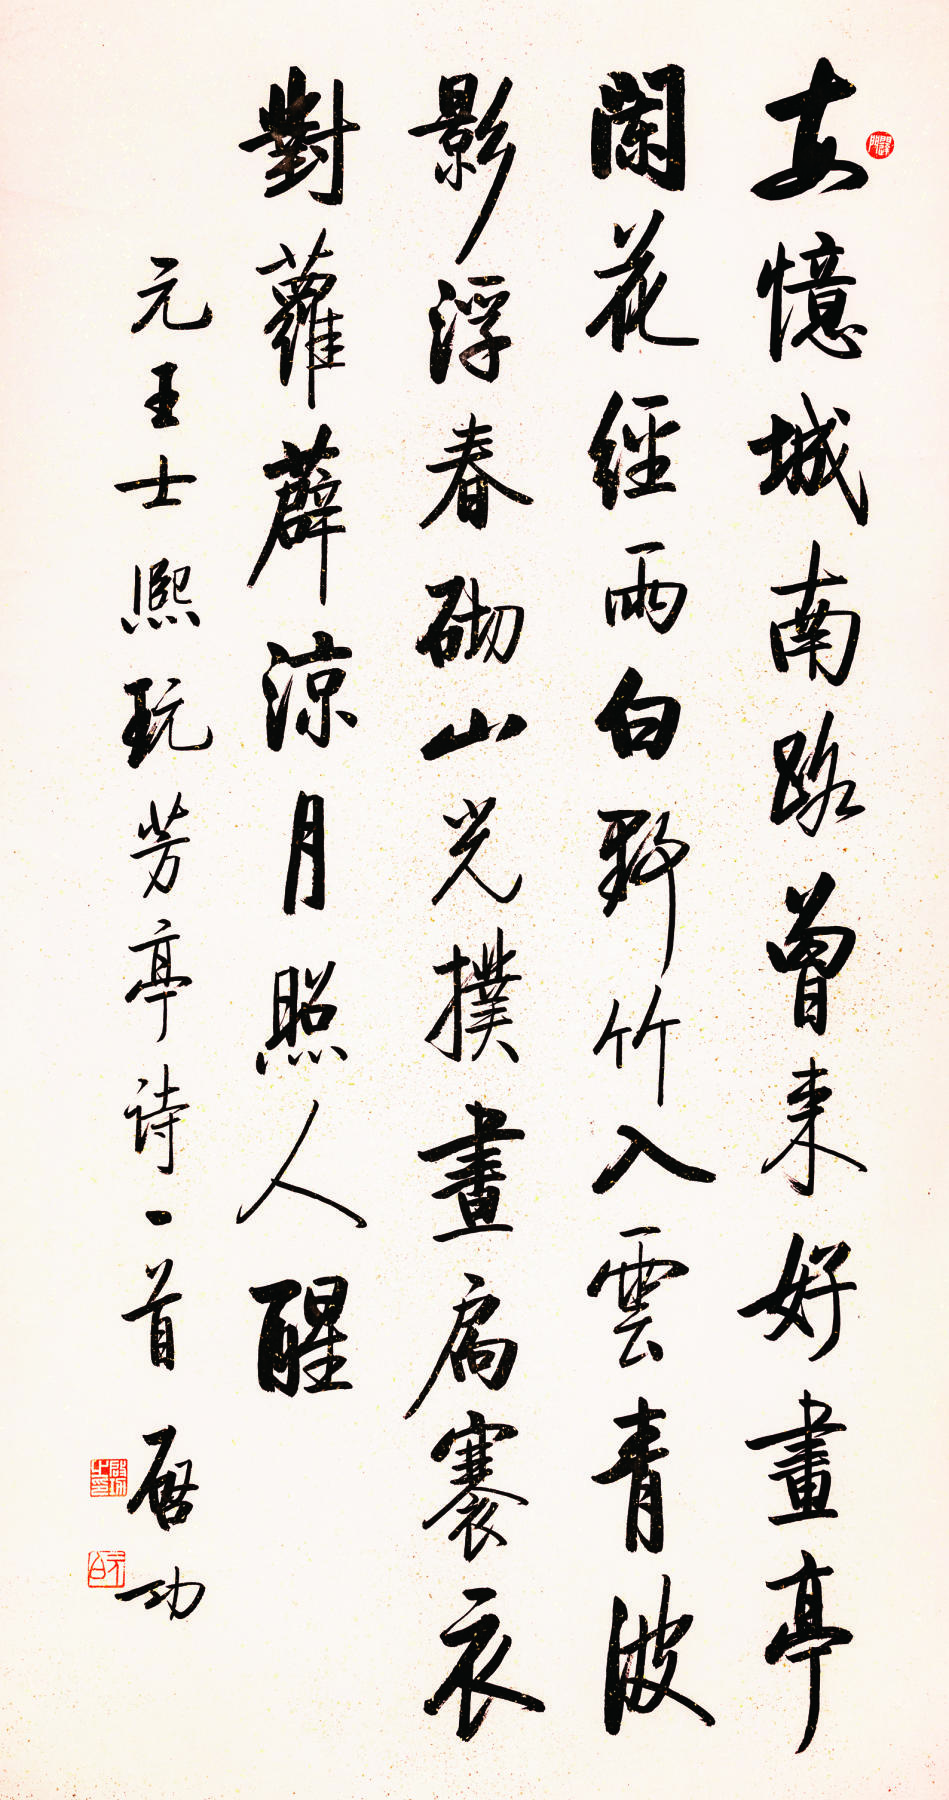 每憶城南路曾来好畫亭
闌花經雨白野竹入雲青波
影浮春砌山光撲畫扃褰衣
對蘿薜涼月照人醒
元王士熙玩芳亭诗一首 启功
啟功之印
元白